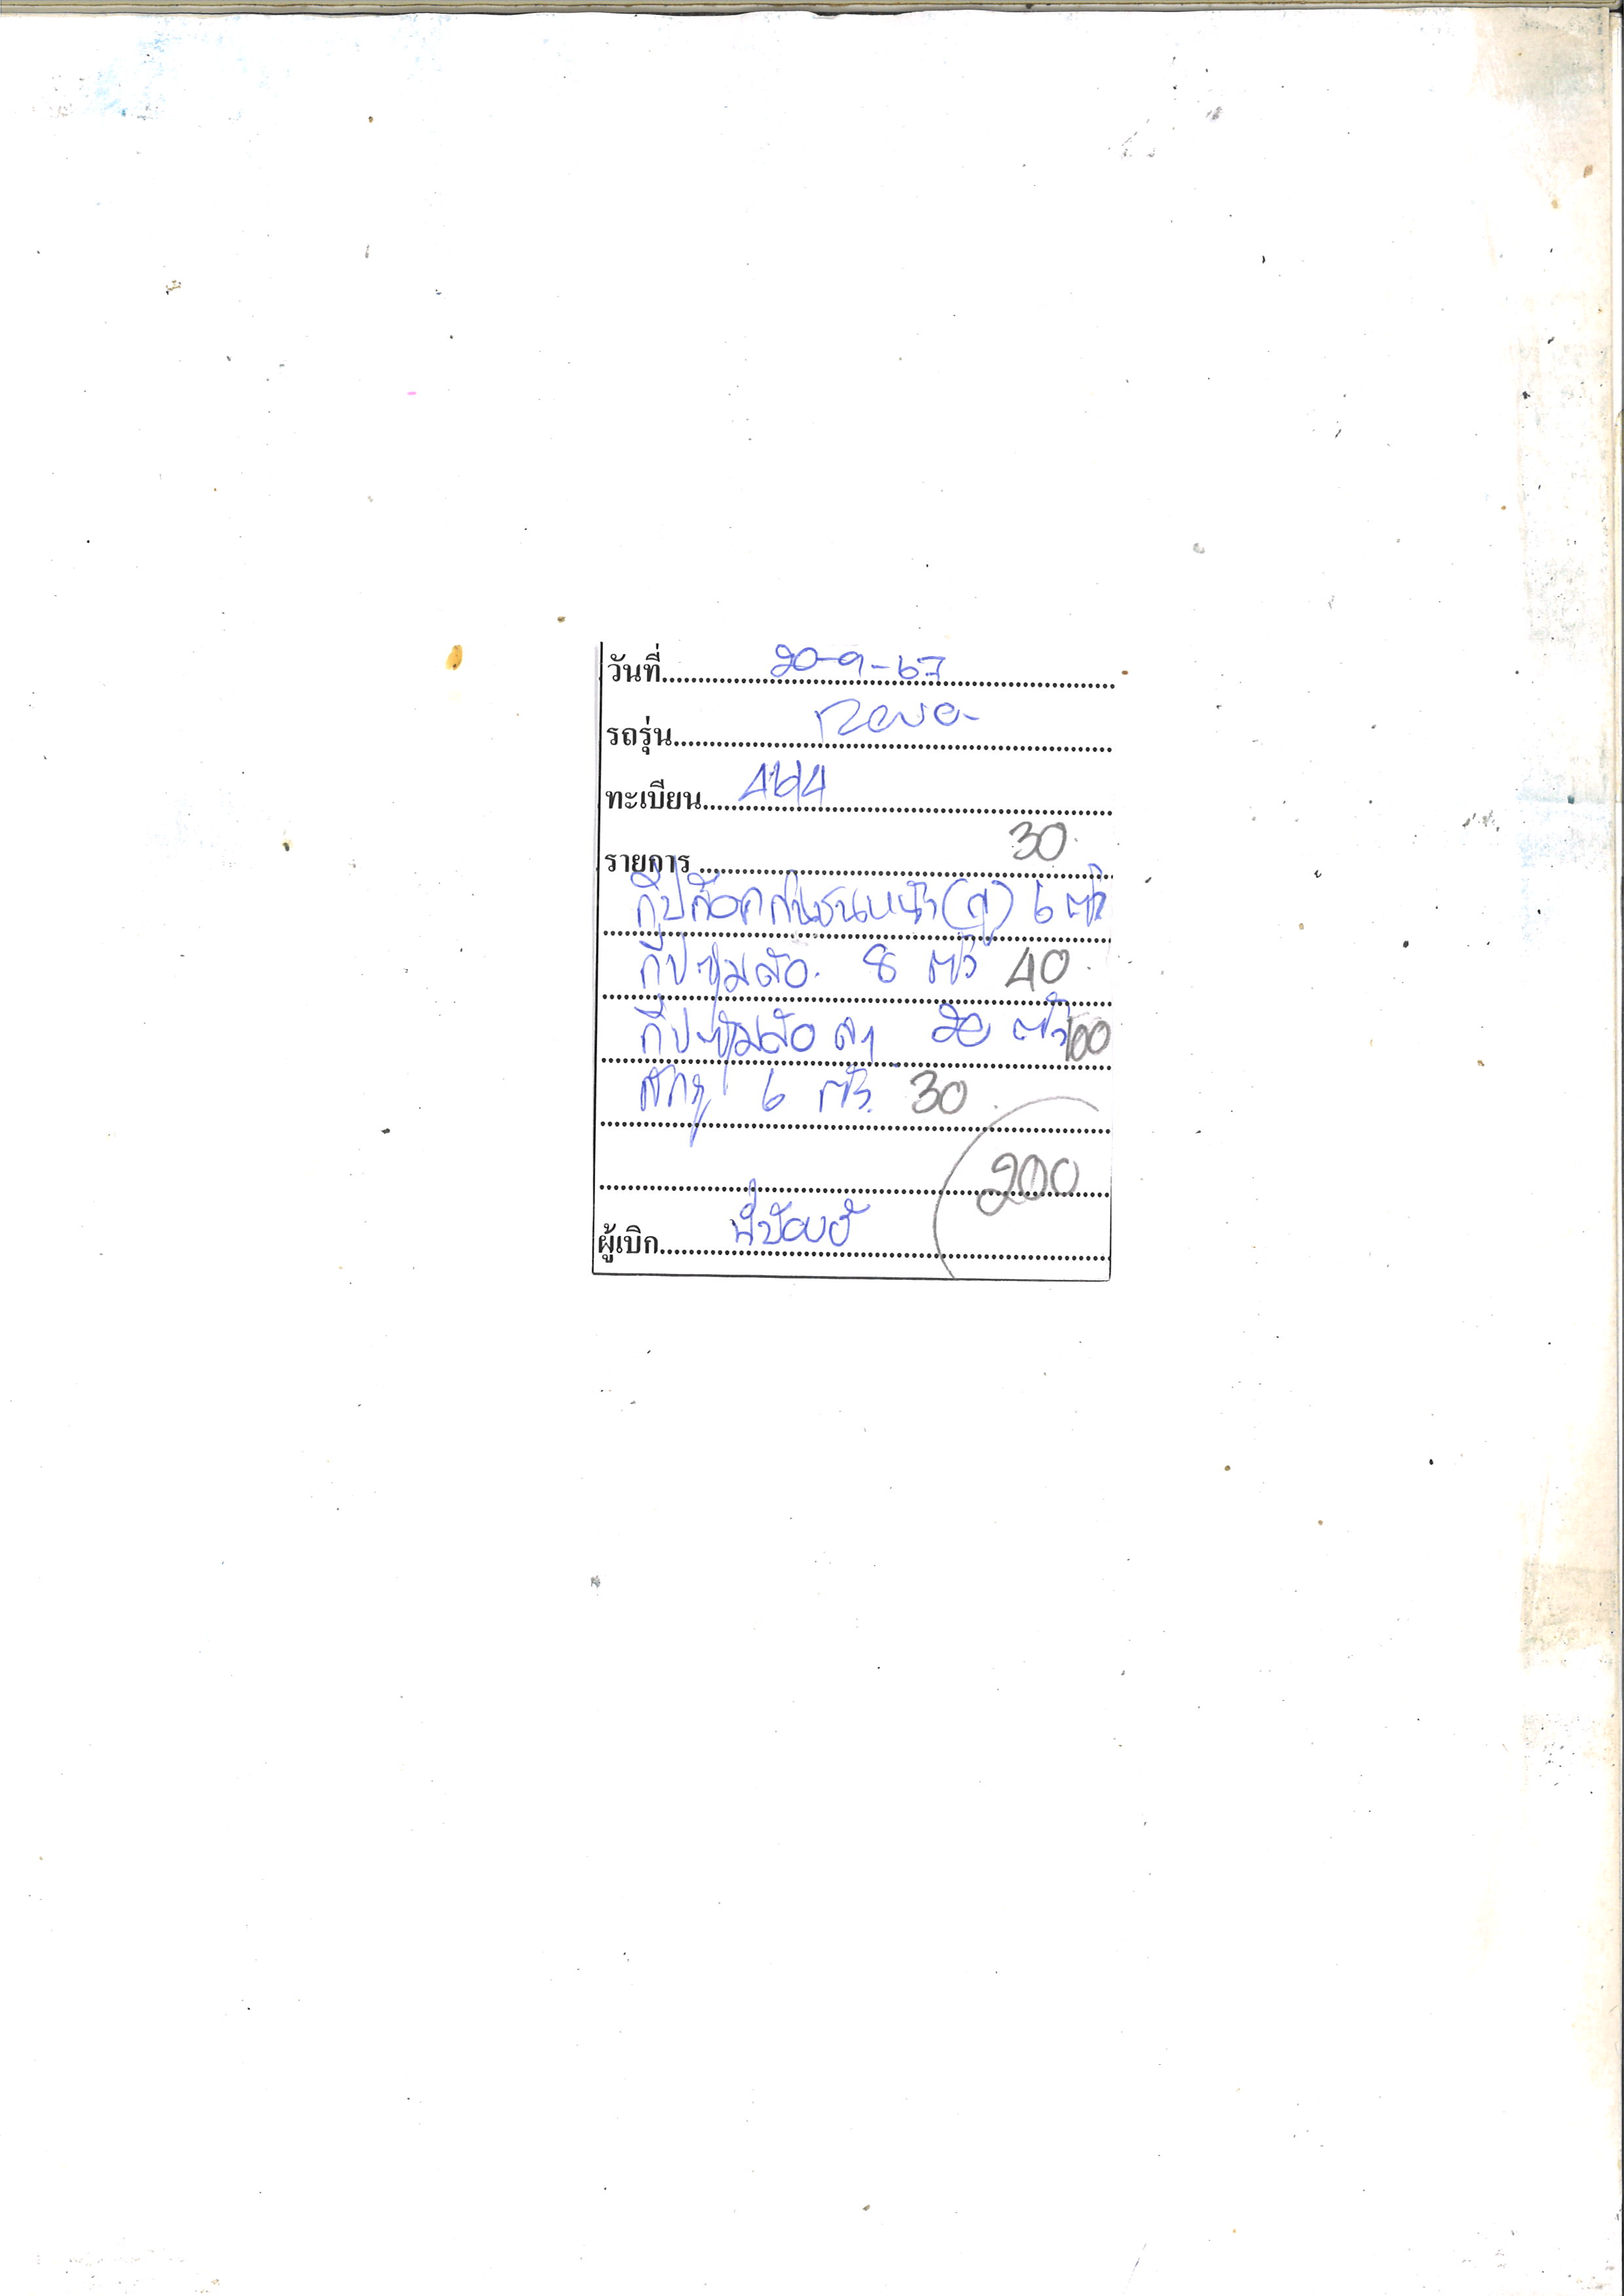 วันที่ 20-9-67
รถรุ่น Revo
ทะเบียน 4114
รายการ 30
กิ๊ปล๊อคกันชนหน้า(  ) 6 ตัว
กิ๊ปซุ้มล้อ 8 ตัว 40
กิ๊ปซุ้มล้อ 20 ตัว 100
สกรู 6 ตัว 30
200
ผู้เบิก